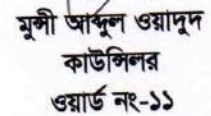 মুন্সী আব্দুল ওয়াদুদ
কাউন্সিলর
ওয়ার্ড নং-১১